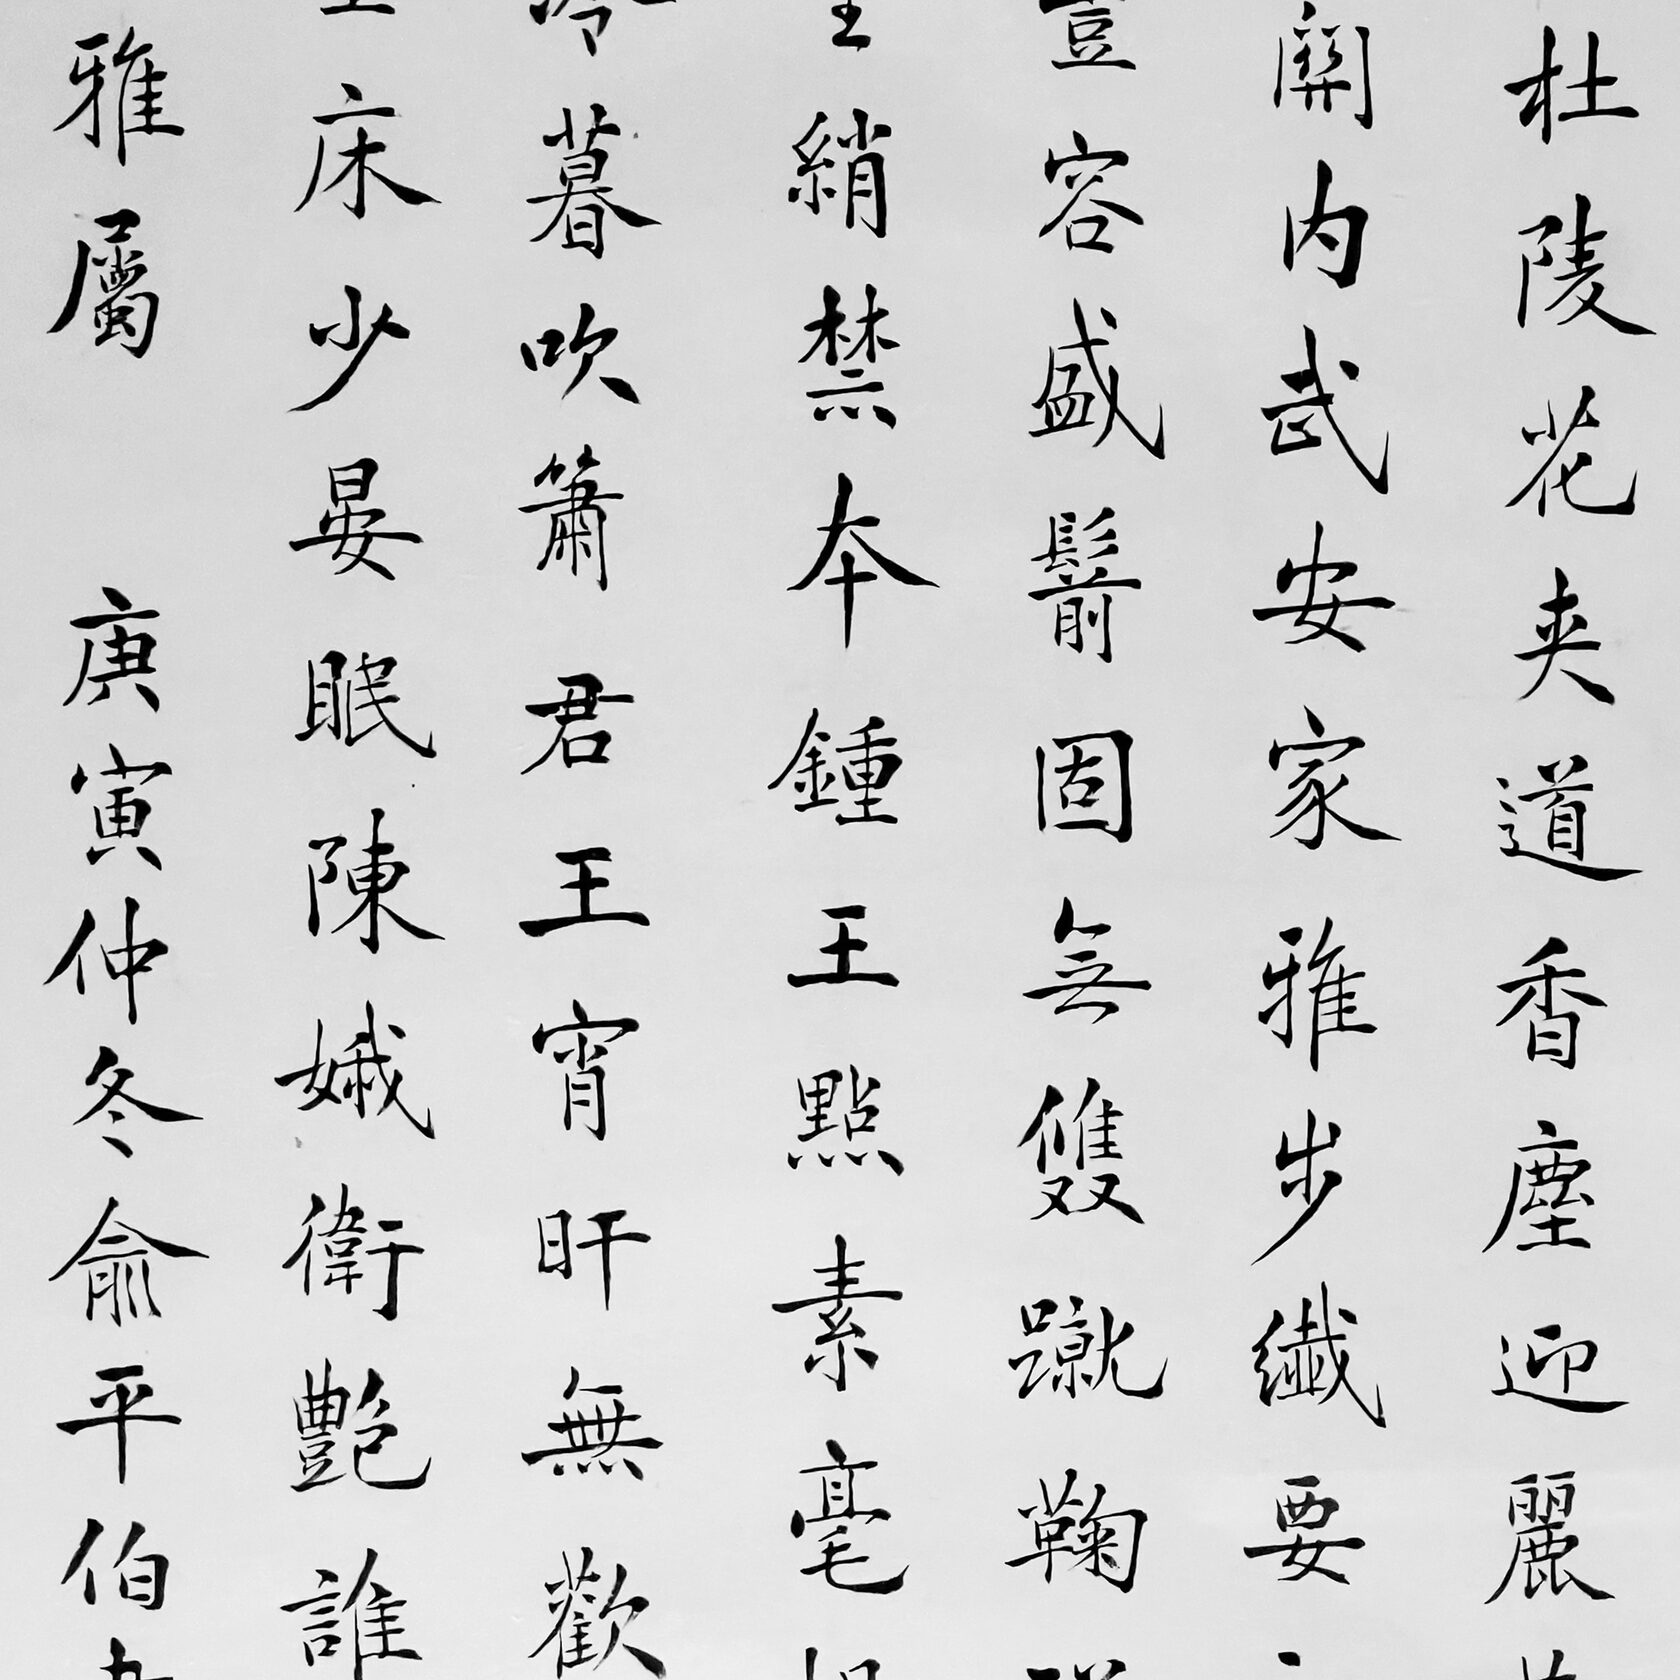 杜陵花夾道香塵迎麗
關内武安家雅步纖要
豈容盛鬋固無雙蹴鞠
綃禁本鍾王點素毫
暮吹簫君王宵旰無歡
床少晏眠陳娥衛艷誰
雅屬 庚寅仲冬俞平伯